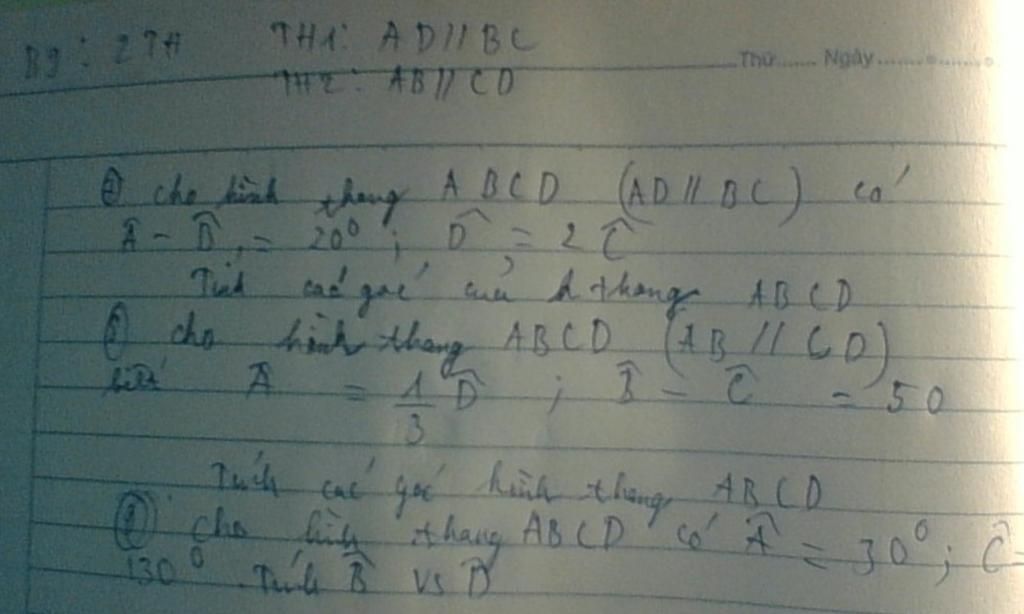 B9: 2TH TH1: AD//BC
TH2: AB//CD
Thứ...... Ngày..............
cho hình thang ABCD (AD//BC) có
Â - B̂ = 20⁰; D̂ = 2Ĉ
Tính các góc của h thang ABCD
cho hình thang ABCD (AB//CD)
biết Â = 1/3 D̂ ; B̂ - Ĉ = 50
Tính các góc hình thang ABCD
9 cho hình thang ABCD có Â = 30⁰; Ĉ =
130⁰. Tính B̂ vs D̂